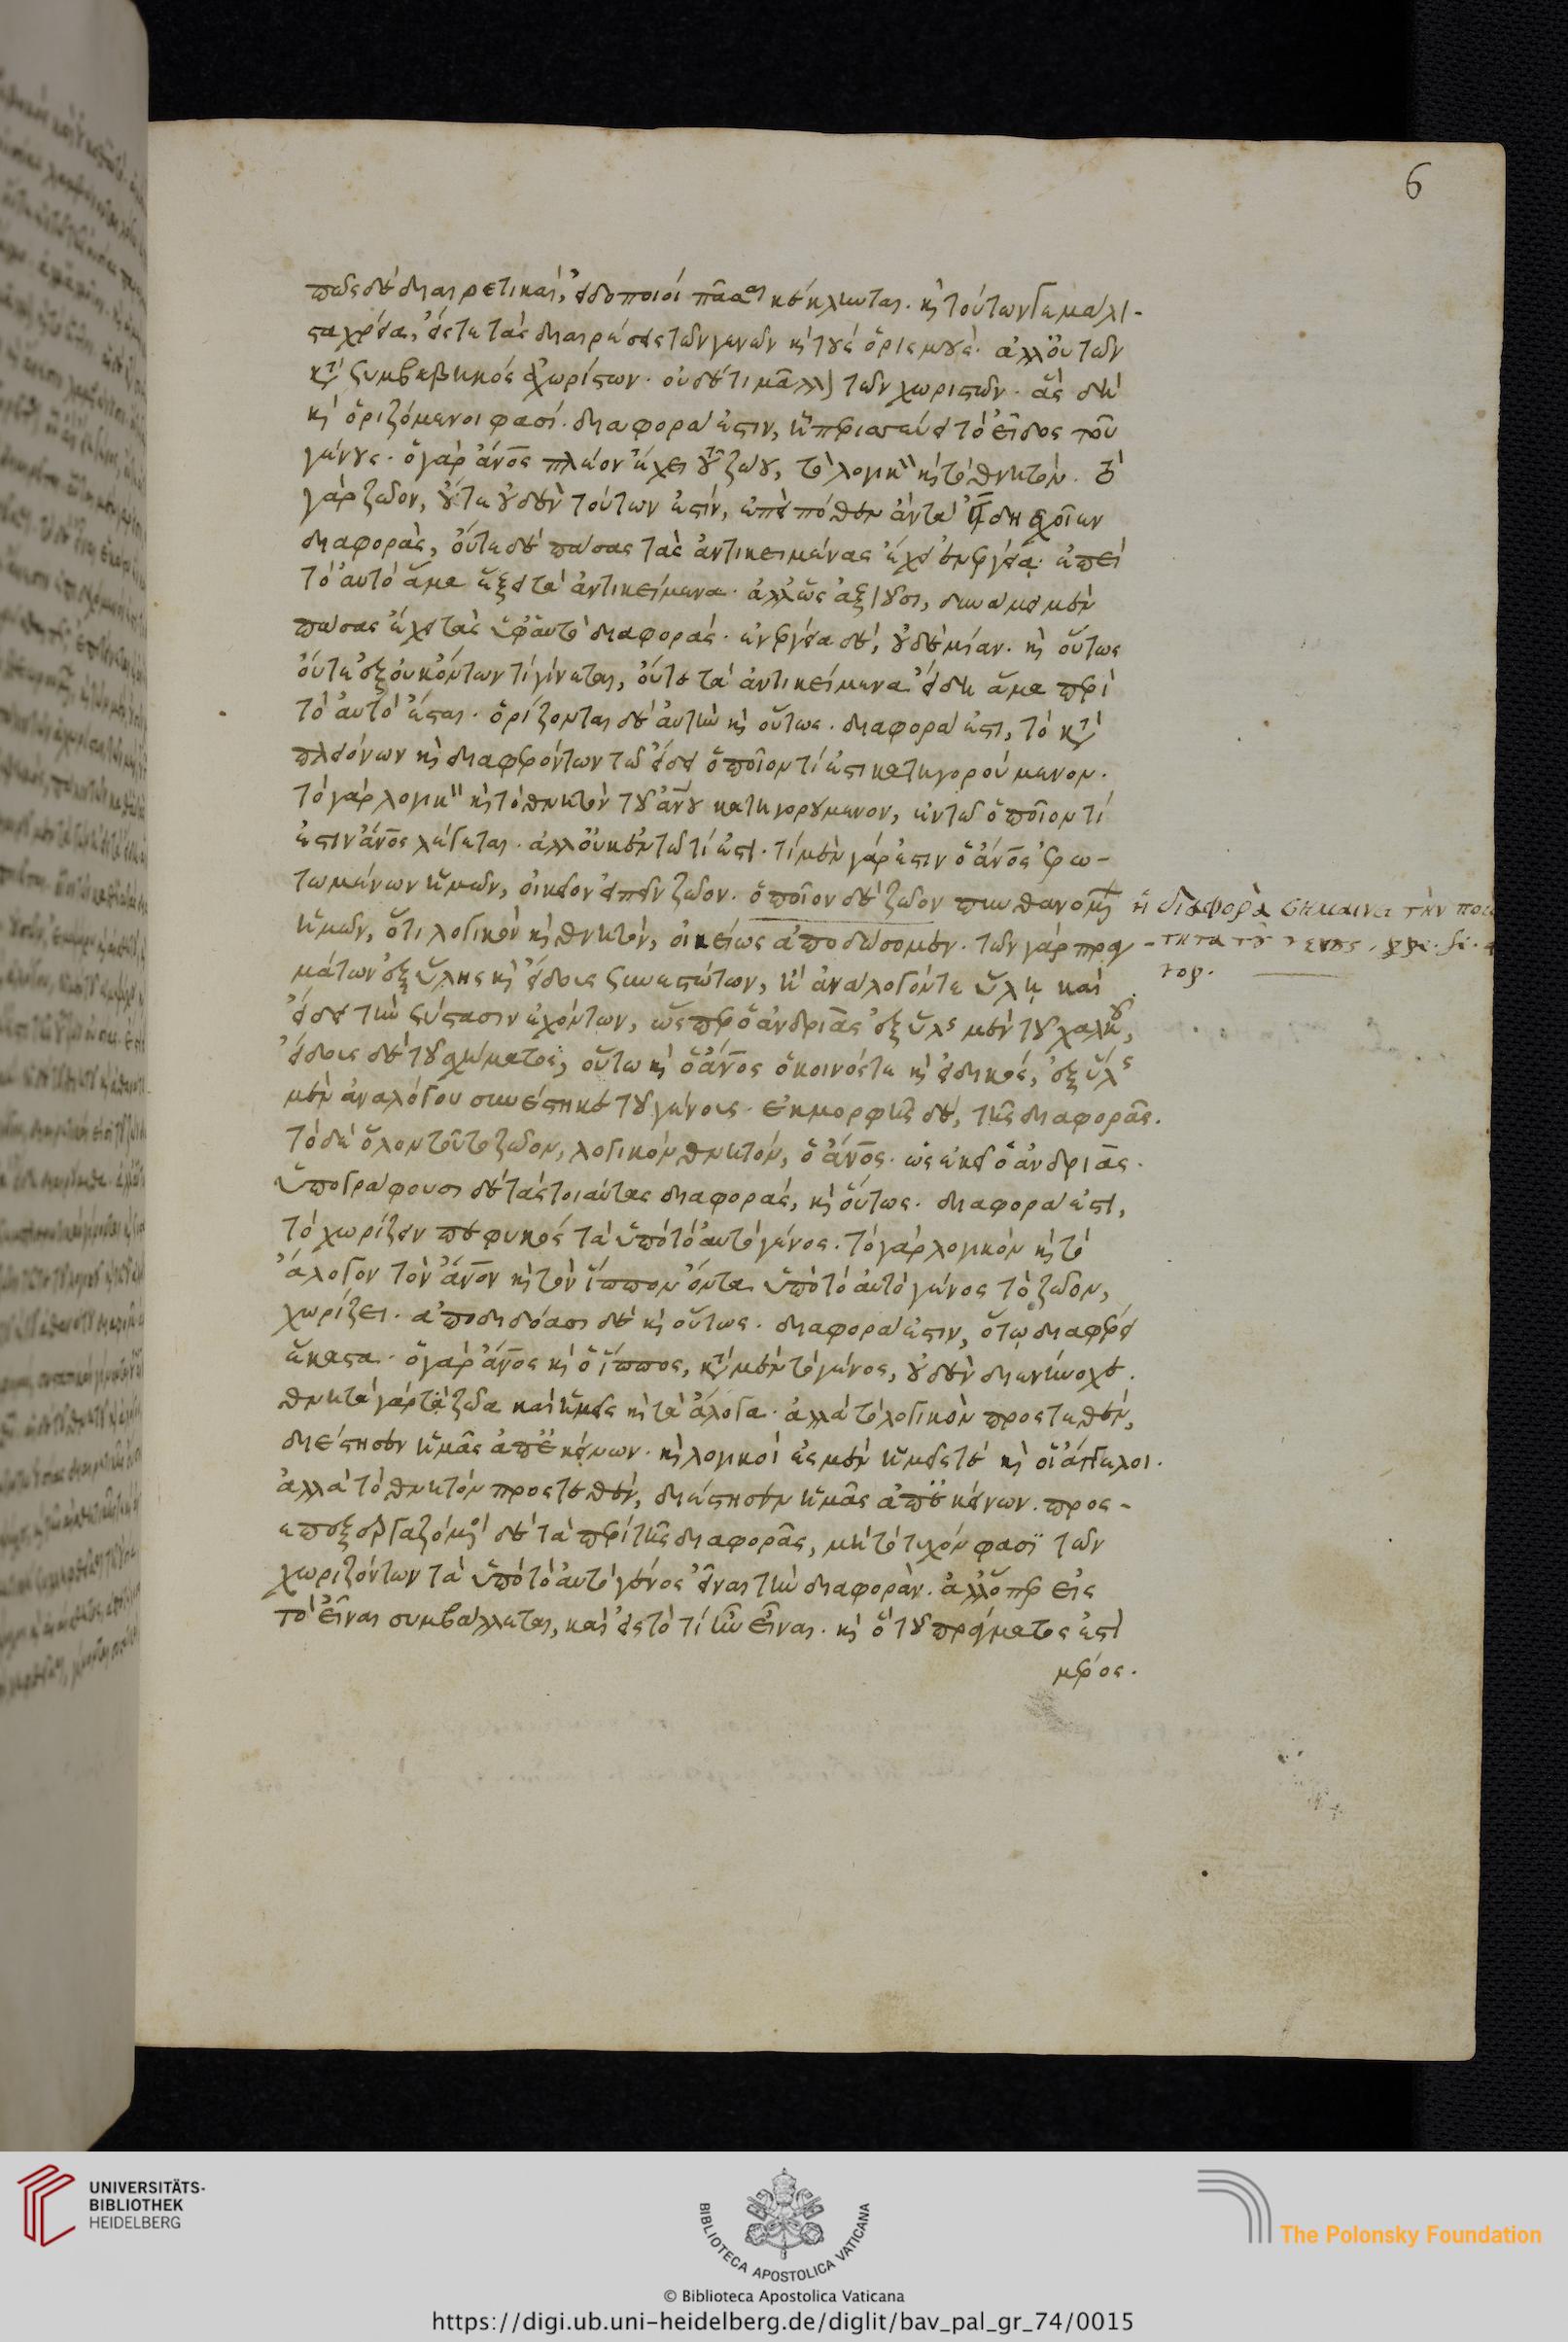 6
πῶς δὲ διαιρετικαὶ, εἰδοποιοί πᾶσαι κέκληνται. καὶ τούτων γε μάλι-
στα χρεία, εἴς τε τὰς διαιρέσεις τῶν γενῶν καὶ τοὺς ὁρισμούς. ἀλλ' οὐ τῶν
κατὰ συμβεβηκὸς ἀχωρίστων. οὐδ' ἔτι μᾶλλον τῶν χωριστῶν. ἃς δὴ
καὶ ὁριζόμενοι φασί. διαφορά ἐστιν, ᾗ περισσεύει τὸ εἶδος τοῦ
γένους. ὁ γὰρ ἄνος πλέον ἔχει τοῦ ζώου, τὸ λογικὸν καὶ τὸ θνητόν. τὸ
γὰρ ζῶον, οὔτε οὐδὲν τούτων ἐστίν, ἐπεὶ πόθεν ἂν τὰ εἴδη σχοῖεν
διαφοράς, οὔτε δὲ πάσας τὰς ἀντικειμένας ἔχει ἐνεργείᾳ. ἐπεὶ
τὸ αὐτὸ ἅμα ἕξει τὰ ἀντικείμενα. ἀλλ' ὡς ἀξιοῦσι, δυνάμει μὲν
πάσας ἔχει τὰς ὑφ' αὑτὸ διαφοράς. ἐνεργείᾳ δὲ, οὐδεμίαν. καὶ οὕτως
οὔτε ἐξ οὐκ ὄντων τι γίνεται, οὔτε τὰ ἀντικείμενα εἴδη ἅμα περὶ
τὸ αὐτὸ ἔσται. ὁρίζονται δὲ αὐτὴν καὶ οὕτως. διαφορά ἐστι, τὸ κατὰ
πλειόνων καὶ διαφερόντων τῷ εἴδει ἐν τῷ ὁποῖον τί ἐστι κατηγορούμενον.
τὸ γὰρ λογικὸν καὶ τὸ θνητὸν τοῦ ἄνου κατηγορούμενον, ἐν τῷ ὁποῖον τί
ἐστιν ἄνος λέγεται. ἀλλ' οὐκ ἐν τῷ τί ἐστι. τί μὲν γάρ ἐστιν ὁ ἄνος ἐρω-
τωμένων ἡμῶν, οἰκεῖον εἰπεῖν ζῶον. ὁποῖον δὲ ζῶον πυνθανομένων
ἡμῶν, ὅτι λογικὸν καὶ θνητὸν, οἰκείως ἀποδώσομεν. τῶν γὰρ πραγ-
μάτων ἐξ ὕλης καὶ εἴδους συνεστώτων, ἢ ἀνάλογόν τε ὕλῃ καὶ
εἴδει τὴν σύστασιν ἐχόντων, ὥσπερ ὁ ἀνδριὰς ἐξ ὕλης μὲν τοῦ χαλκοῦ,
εἴδους δὲ τοῦ σχήματος, οὕτω καὶ ὁ ἄνος ὁ κοινός τε καὶ εἰδικός, ἐξ ὕλης
μὲν ἀναλόγου συνέστηκε τοῦ γένους. ἐκ μορφῆς δὲ, τῆς διαφορᾶς.
τὸ δὲ ὅλον τοῦτο ζῶον, λογικὸν θνητόν, ὁ ἄνος. ὡς ἐκεῖ ὁ ἀνδριάς.
ὑπογράφουσι δὲ τὰς τοιαύτας διαφοράς, καὶ οὕτως. διαφορά ἐστι,
τὸ χωρίζειν πεφυκὸς τὰ ὑπὸ τὸ αὐτὸ γένος. τὸ γὰρ λογικὸν καὶ τὸ
ἄλογον τὸν ἄνον καὶ τὸν ἵππον ὄντα ὑπὸ τὸ αὐτὸ γένος τὸ ζῶον,
χωρίζει. ἀποδιδόασι δὲ καὶ οὕτως. διαφορά ἐστιν, ὅτῳ διαφέρει
ἕκαστα. ὁ γὰρ ἄνος καὶ ὁ ἵππος, κατὰ μὲν τὸ γένος, οὐδὲν διενήνοχε.
θνητὰ γάρ τὰ ζῶα καὶ ἡμεῖς καὶ τὰ ἄλογα. ἀλλὰ τὸ λογικὸν προστεθὲν,
διέστησεν ἡμᾶς ἀπ' ἐκείνων. καὶ λογικοί ἐσμεν ἡμεῖς τε καὶ οἱ ἄγγελοι.
ἀλλὰ τὸ θνητὸν προστεθὲν, διέστησεν ἡμᾶς ἀπ' ἐκείνων. προσ-
επεξεργαζόμενοι δὲ τὰ περὶ τῆς διαφορᾶς, μὴ τὸ τυχόν φασι τῶν
χωριζόντων τὰ ὑπὸ τὸ αὐτὸ γένος εἶναι τὴν διαφοράν. ἀλλ' ὅπερ εἰς
τὸ εἶναι συμβάλλεται, καὶ εἰς τὸ τί ἦν εἶναι. καὶ ὃ τοῦ πράγματος ἐστὶ
μέρος.
ἡ διαφορὰ σημαίνει τὴν ποιό-
τητα τοῦ γένους
UNIVERSITÄTS-
BIBLIOTHEK
HEIDELBERG
BIBLIOTECA APOSTOLICA VATICANA
The Polonsky Foundation
© Biblioteca Apostolica Vaticana
https://digi.ub.uni-heidelberg.de/diglit/bav_pal_gr_74/0015